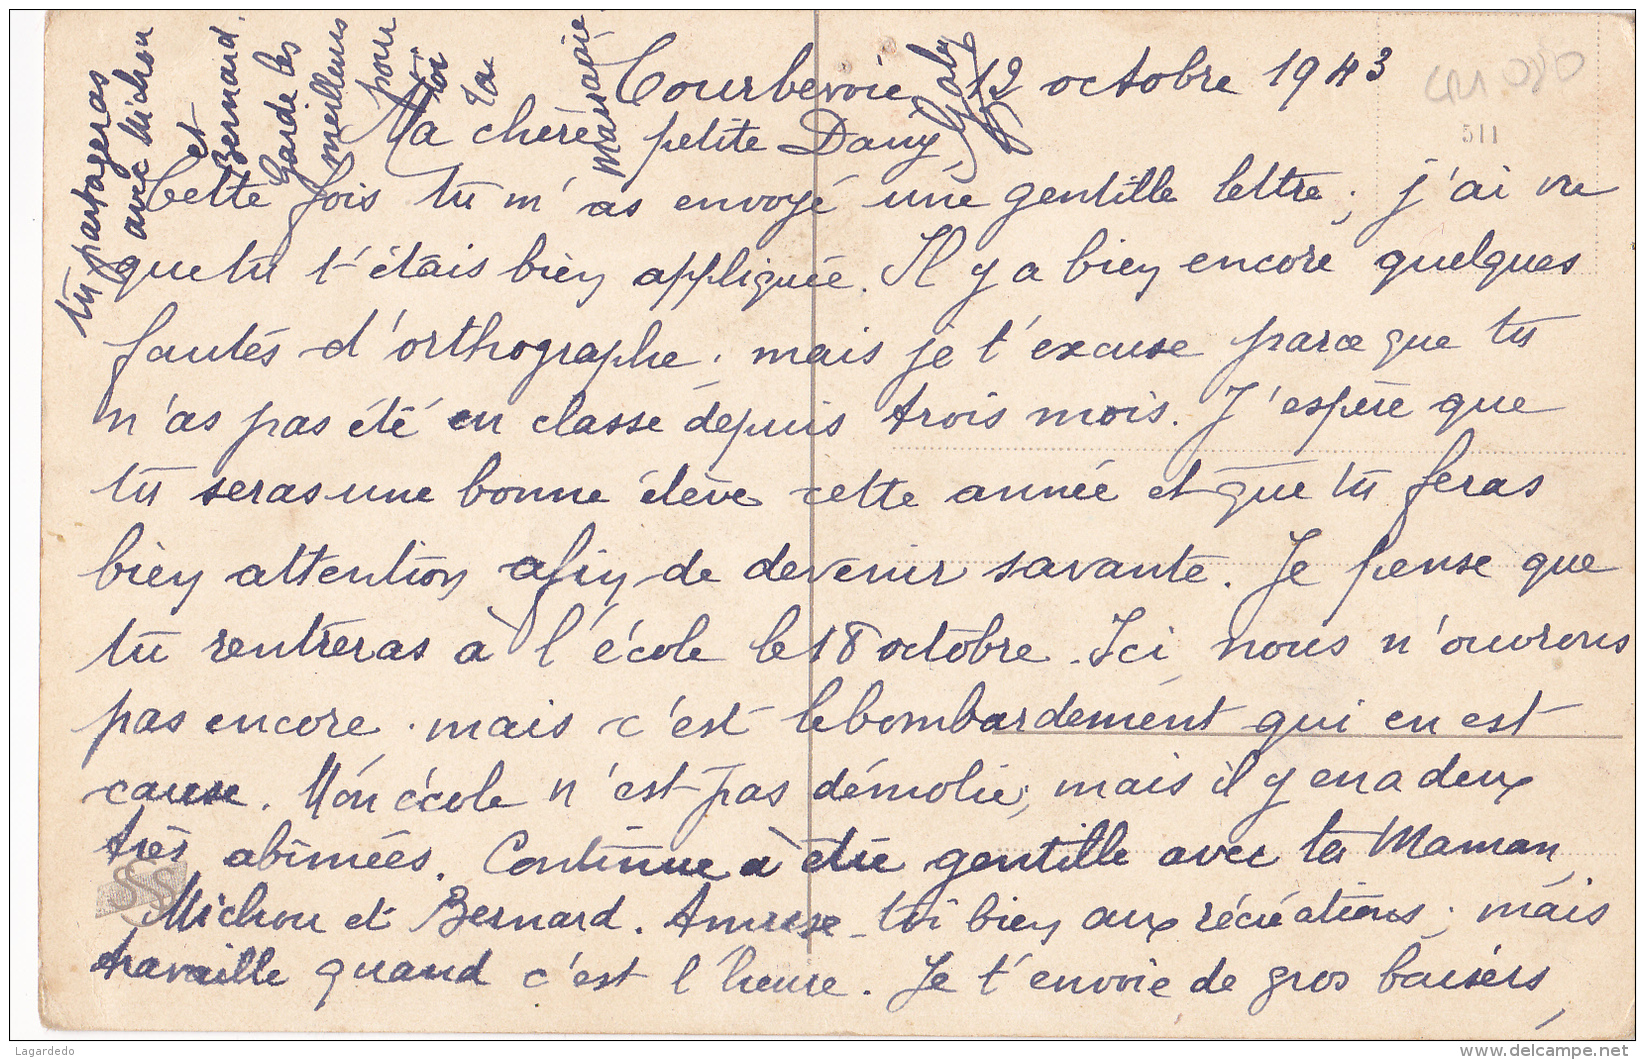 Courbevoie 12 octobre 1943
Ma chère petite Dany,
Cette fois tu m'as envoyé une gentille lettre; j'ai vu
que tu t'étais bien appliquée. Il y a bien encore quelques
fautes d'orthographe; mais je t'excuse parce que tu
n'as pas été en classe depuis trois mois. J'espère que
tu seras une bonne élève cette année et que tu feras
bien attention afin de devenir savante. Je pense que
tu rentreras à l'école le 18 octobre. Ici nous n'ouvrons
pas encore. mais c'est le bombardement qui en est
cause. Mon école n'est pas démolie, mais il y en a deux
très abîmées. Continue à être gentille avec ta Maman,
Michou et Bernard. Amuse-toi bien aux récréations; mais
travaille quand c'est l'heure. Je t'envoie de gros baisers,
tu partageras
avec Michou
et
Bernard.
Garde les
meilleurs
pour
toi
ta
marraine
Gaby
511
SS
Lagardedo
delcampe.net